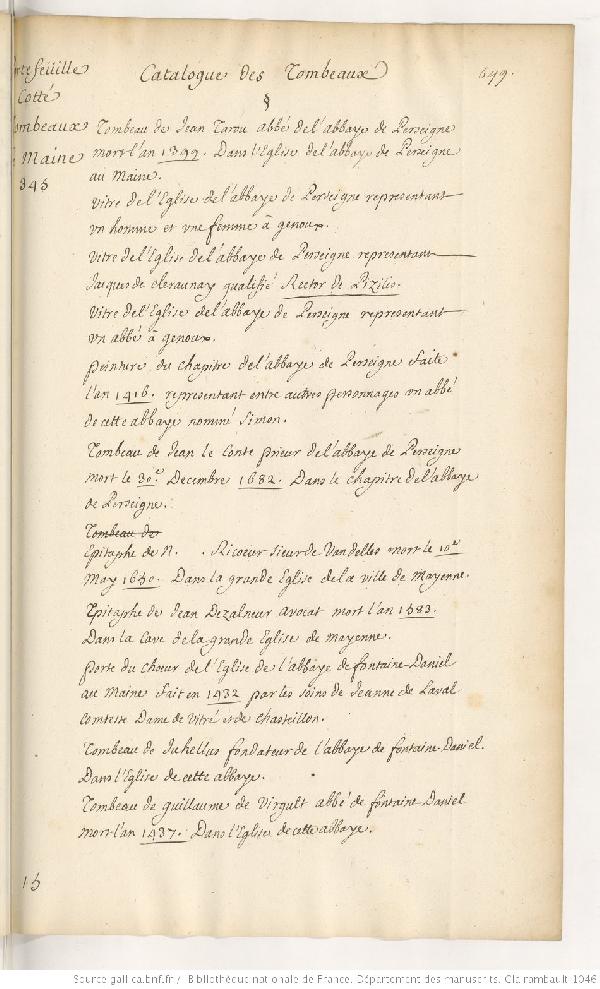 tefeüille
Catalogue des Tombeaux
649.
Cotté
§
ombeaux
Maine
Tombeau de Jean Tarou abbé de l'abbaye de Perseigne
mort l'an 1399. Dans l'Eglise de l'abbaye de Perseigne
au Maine.
vitre de l'Eglise de l'abbaye de Perseigne representant
vn homme et vne femme à genoux.
vitre de l'Eglise de l'abbaye de Perseigne representant
Jacques de cleraunay qualifié Rector de Pizilis.
vitre de l'Eglise de l'abbaye de Perseigne representant
vn abbé à genoux.
peinture du chapitre de l'abbaye de Perseigne faite
l'an 1416. representant entre autres personnages vn abbé
de cette abbaye nommé Simon.
Tombeau de Jean le Conte prieur de l'abbaye de Perseigne
mort le 30e Decembre 1682. Dans le chapitre de l'abbaye
de Perseigne.
Tombeau de
Epitaphe de N. . Ricoeur sieur de Vandelles mort le 10e
May 1650. Dans la grande Eglise de la ville de Mayenne.
Epitaphe de Jean Dezalneur avocat mort l'an 1583.
Dans la Cave de la grande Eglise de mayenne.
porte du choeur de l'Eglise de l'abbaye de fontaine-Daniel
au Maine fait en 1432 par les soins de Jeanne de Laval
comtesse Dame de Vitré et de Chasteillon.
Tombeau de Juhellus fondateur de l'abbaye de fontaine-Daniel.
Dans l'Eglise de cette abbaye.
Tombeau de guillaume de Virgult abbé de fontaine-Daniel
mort l'an 1437. Dans l'Eglise de cette abbaye.
15
Source gallica.bnf.fr / Bibliothèque nationale de France. Département des manuscrits. Clairambault 1046